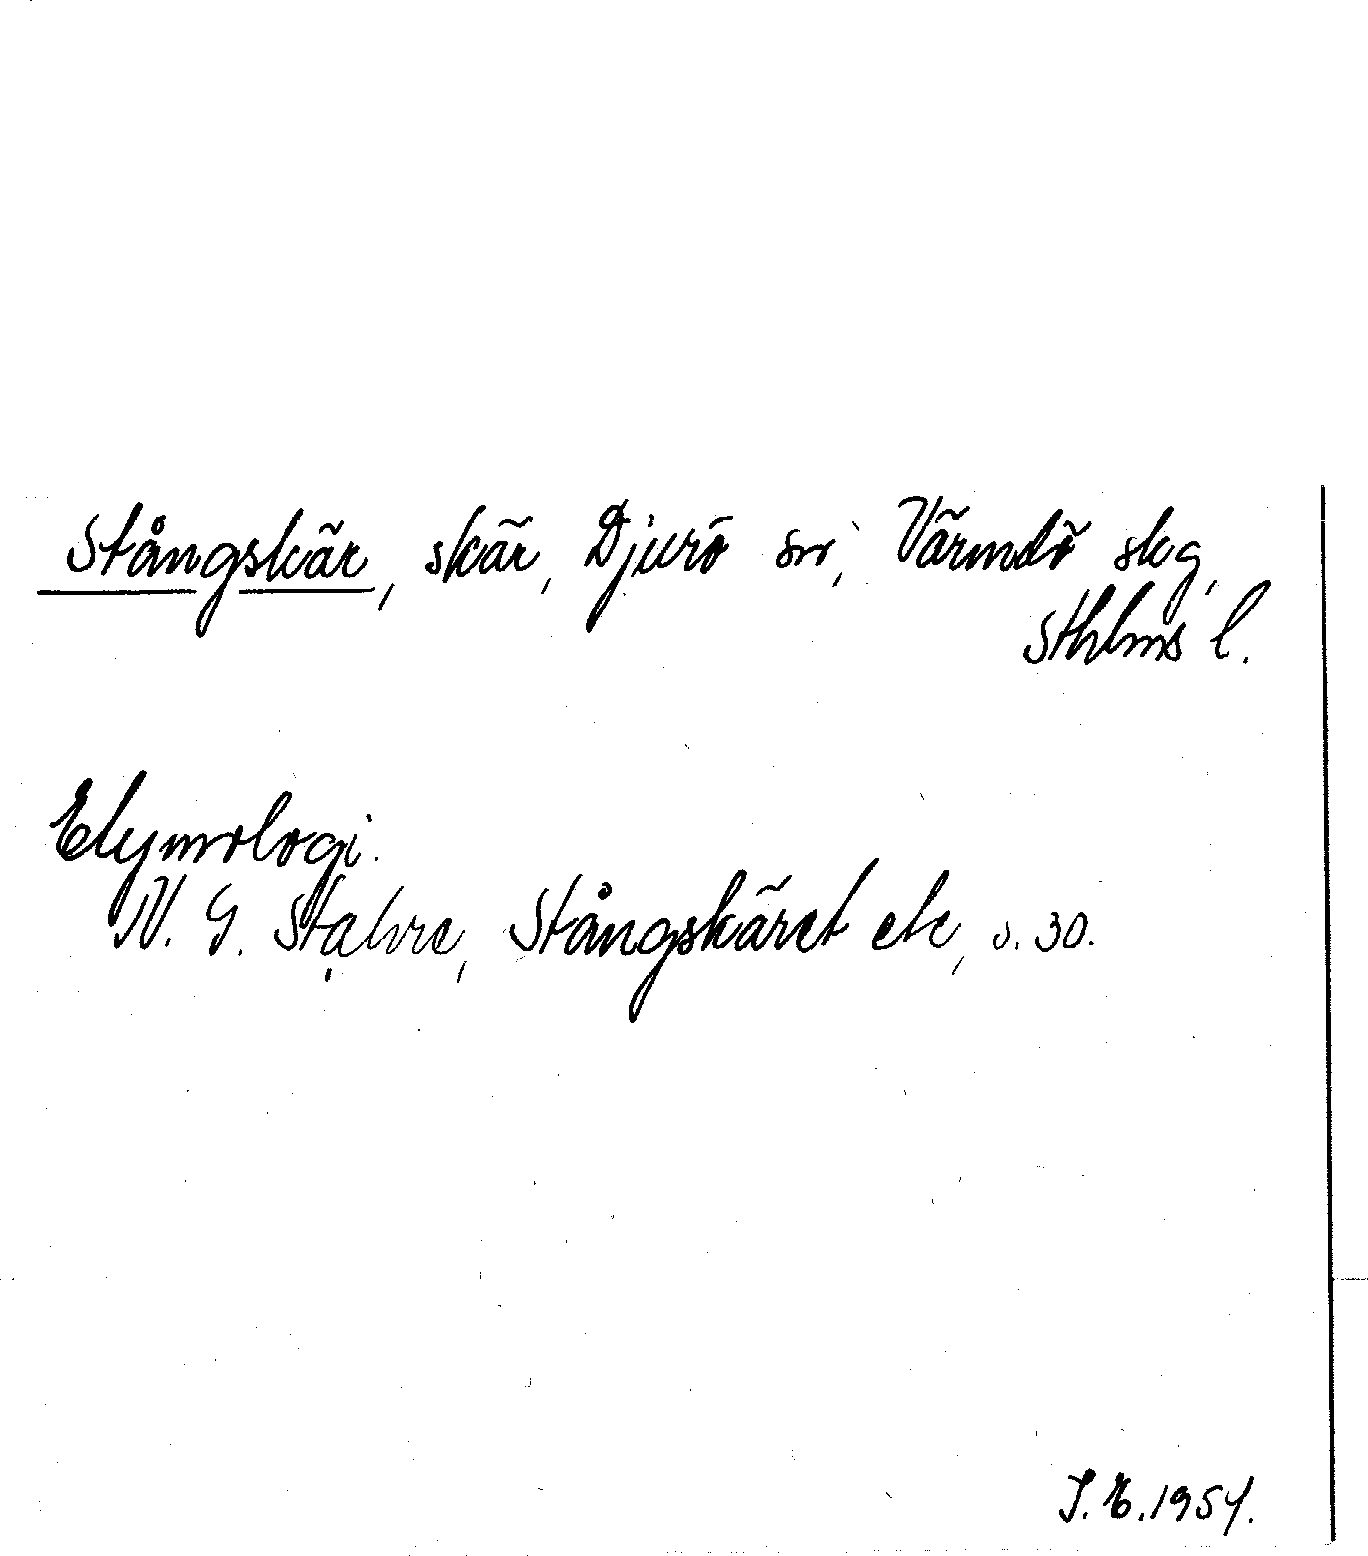 Stångskär, skär, Djurö sn, Värmdö skg,
Sthlms l.
Etymologi.
N. G. Stahre, Stångskäret etc, s. 30.
I. E. 1954.